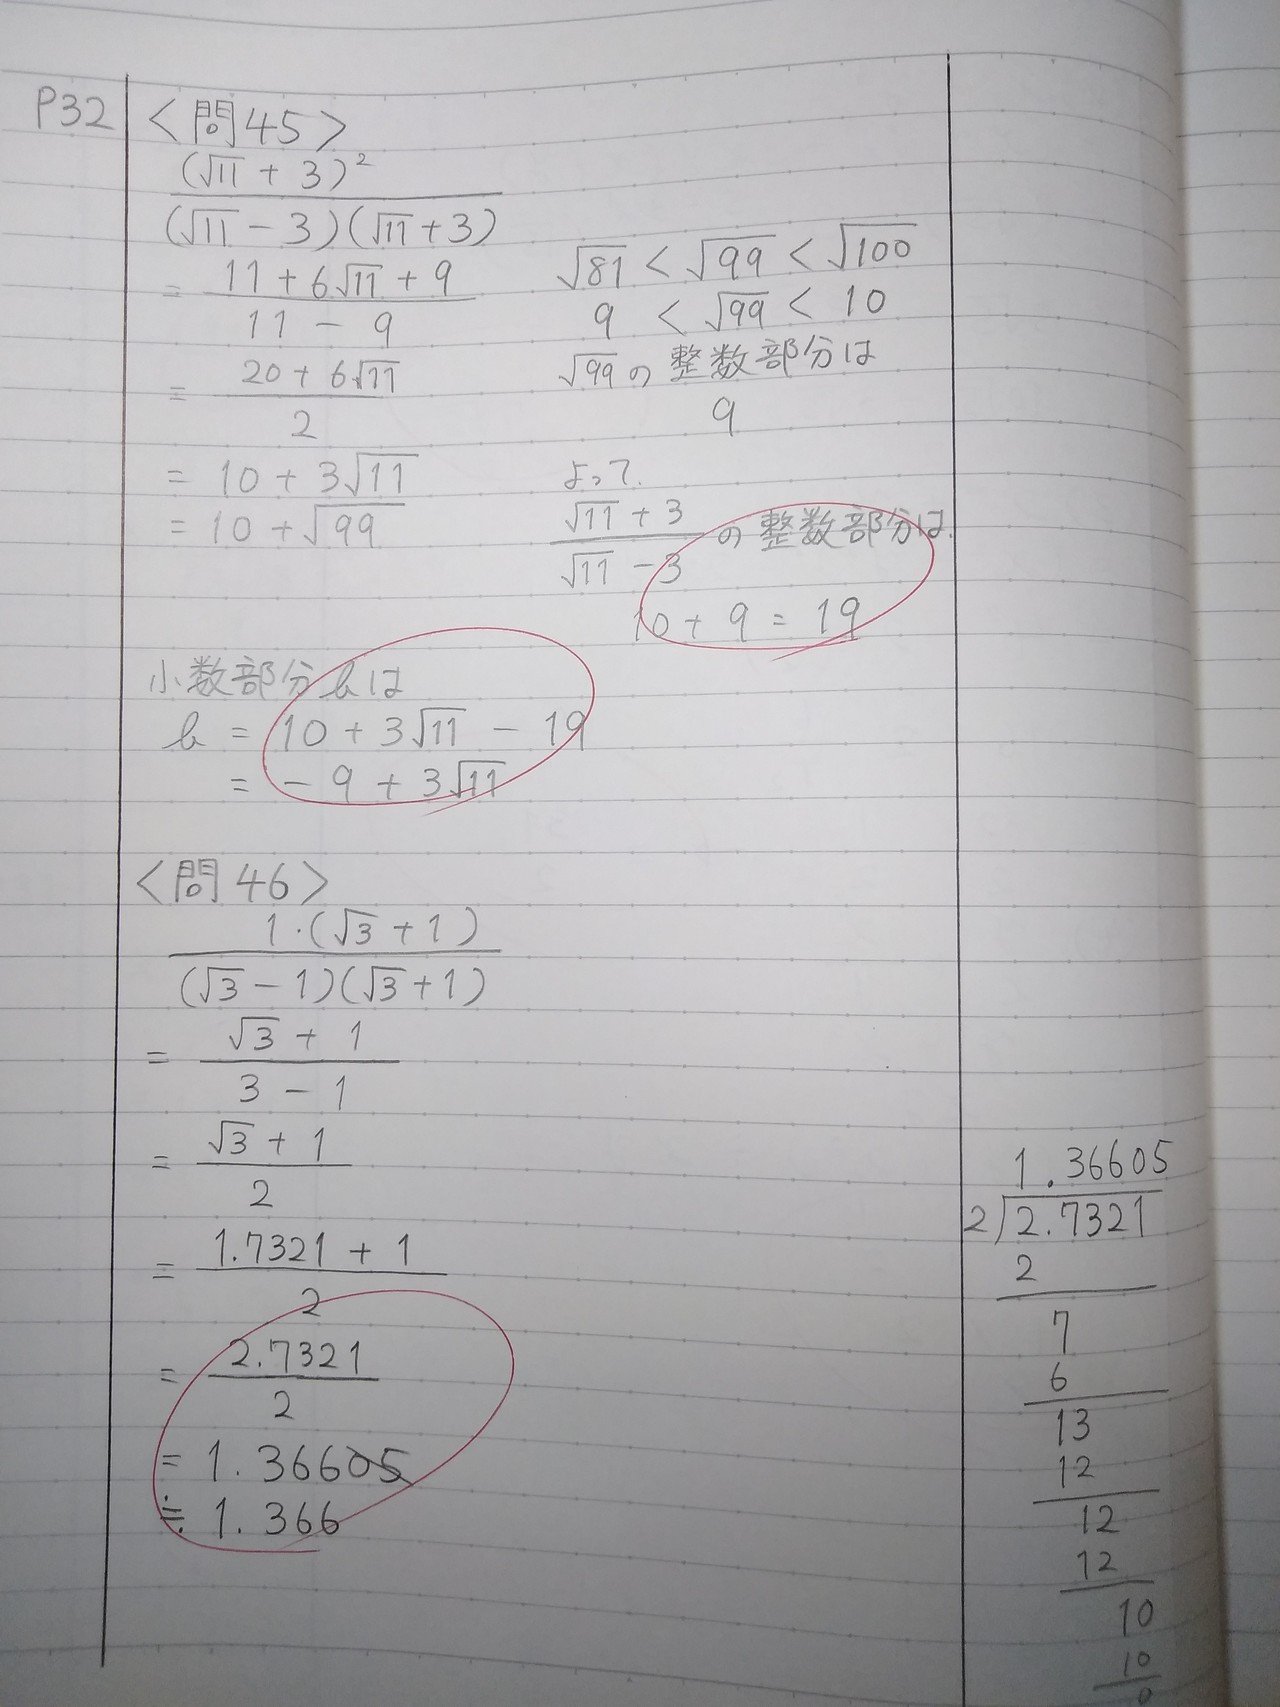 P32
<問45>
(√11 + 3)²
(√11 - 3)(√11 + 3)
= 11 + 6√11 + 9
11 - 9
= 20 + 6√11
2
= 10 + 3√11
= 10 + √99
√81 < √99 < √100
9 < √99 < 10
√99の整数部分は
9
よって、
√11 + 3
√11 - 3
の整数部分は、
10 + 9 = 19
小数部分bは
b = 10 + 3√11 - 19
= -9 + 3√11
<問46>
1・(√3 + 1)
(√3 - 1)(√3 + 1)
= √3 + 1
3 - 1
= √3 + 1
2
= 1.7321 + 1
2
= 2.7321
2
= 1.36605
≒ 1.366
1.36605
2)2.7321
2
7
6
13
12
12
12
10
10
0